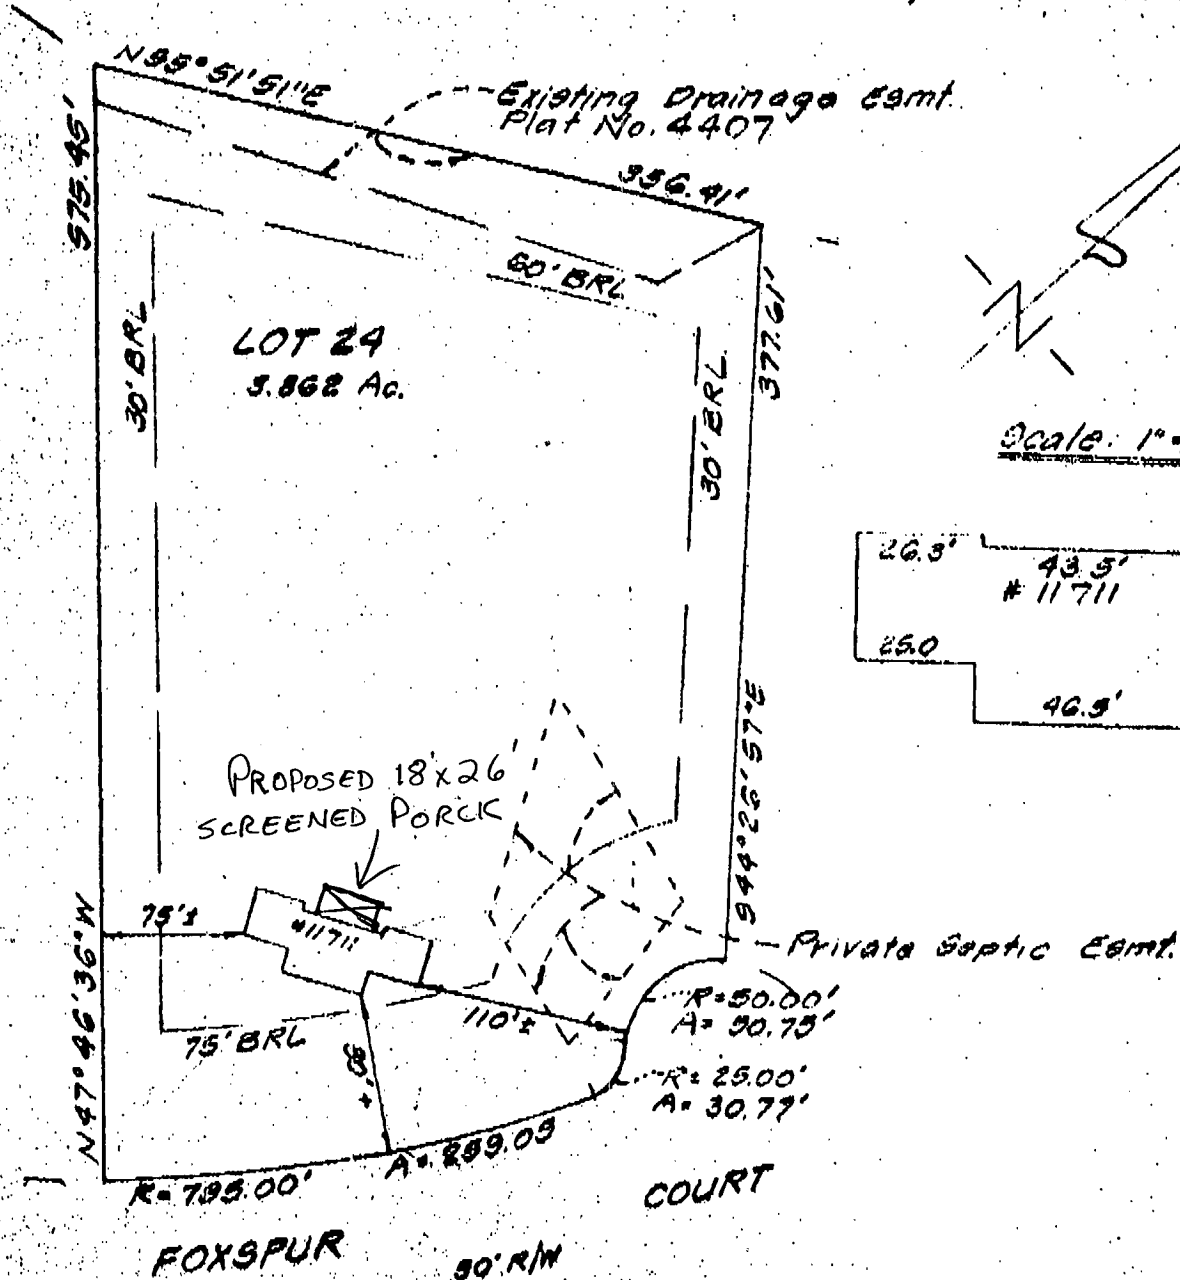 N 35° 51' 51" E
Existing Drainage Esmt.
Plat No. 4407
575.45'
356.41'
60' BRL
377.61'
30' BRL
LOT 24
3.862 Ac.
30' BRL
Scale: 1" =
26.3'
43.5'
# 11711
25.0
46.3'
PROPOSED 18'x26
SCREENED PORCH
S44°28'57"E
75'±
#11711
Private Septic Esmt.
N47°46'36"W
110'±
R=50.00'
A= 50.75'
75' BRL
R= 25.00'
A= 30.77'
A= 259.03
R= 795.00'
COURT
FOXSPUR
50' R/W